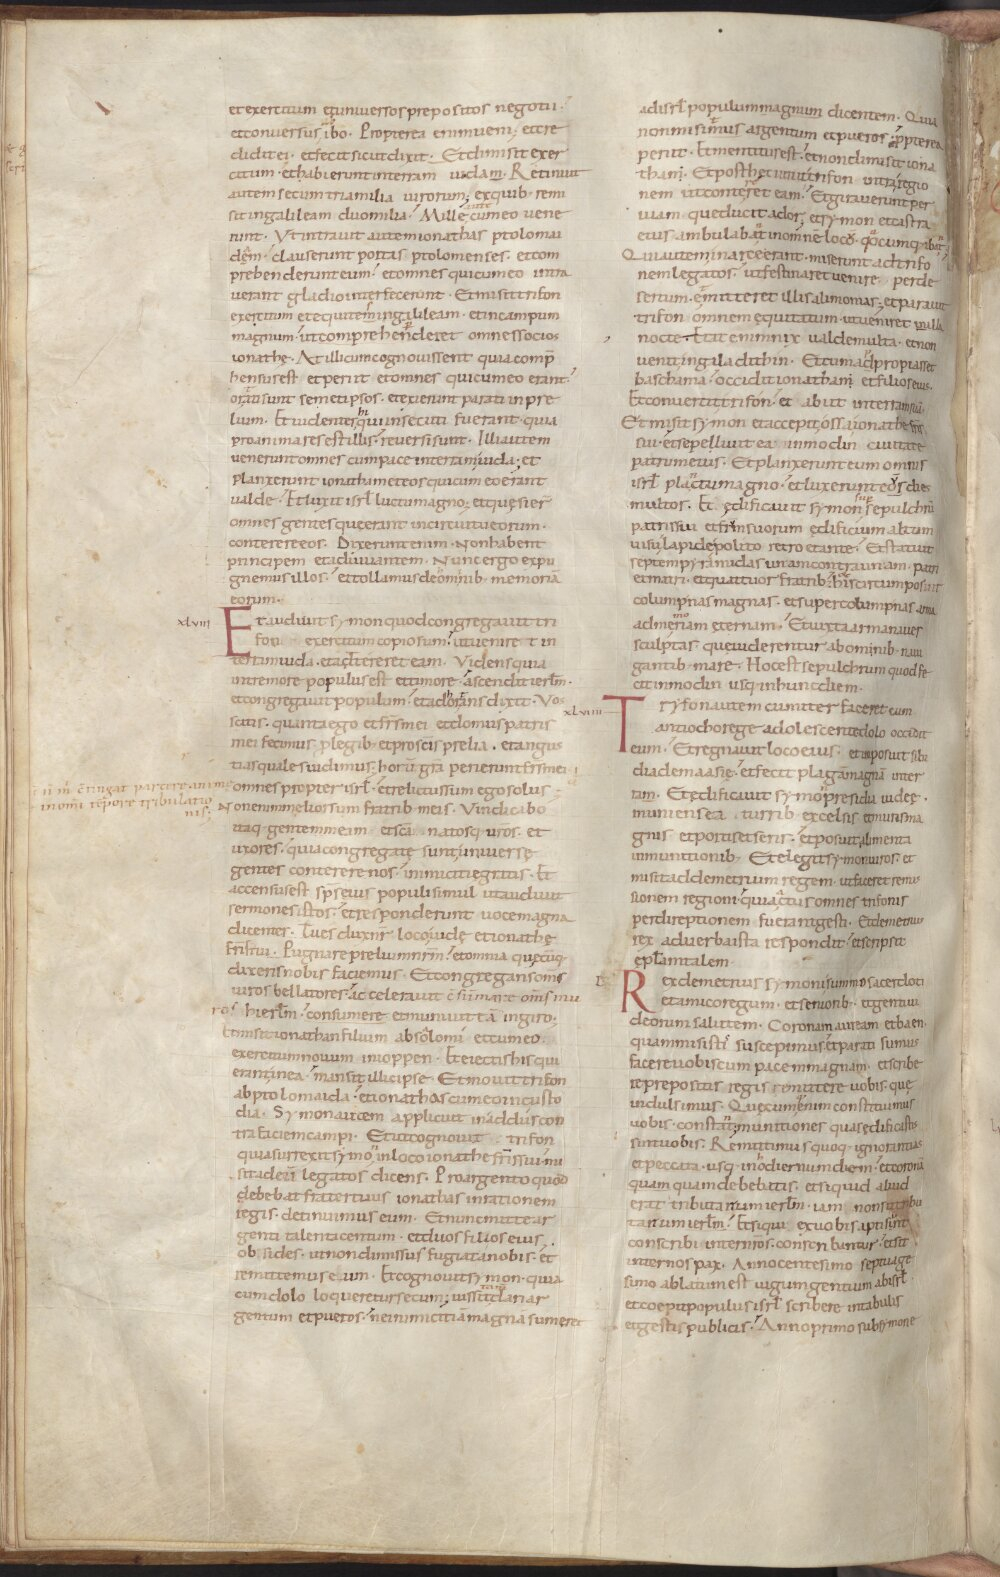 et exercitum et universos prepositos negotii.
et conversus ibo. Propterea enim veni; et cre
didit ei. et fecit sicut dixit. Et dimisit exer
citum. et habierunt in terram iuda. Retinuit
autem secum tria milia virorum; ex quib. remi
sit in galileam duo milia. Mille autē cum eo vene
runt. Ut intravit autem ionathas ptolomai
dem. clauserunt portas ptolomenses. et com
prehenderunt eum. et omnes qui cum eo intra
verant gladio interfecerunt. Et misit trifon
exercitum et equitem in galileam. et in campum
magnum. ut comprehenderet omnes socios
ionathę. At illi cum cognovissent quia comp̄
hensus est et periit et omnes qui cum eo erant.
ortati sunt semetipsos. et exierunt parati in pre
lium. Et videntes hi qui insecuti fuerant. quia
pro anima res est illis. reversi sunt. Illi autem
venerunt omnes cum pace in terram iuda; et
planxerunt ionatham et eos qui cum eo erant
valde. Et luxit isrł luctu magno; et quesier̄
omnes gentes que erant in circuitu eorum.
conterere eos. Dixerunt enim. Non habent
principem et adiuvantem. Nunc ergo expu
gnemus illos. et tollamus de omnib. memoriā
eorum.
xlviii Et audivit symon quod congregavit tri
fon exercitum copiosum. ut veniret in
terram iuda. et adtereret eam. Videns quia
in tremore populus est et timore. ascendit ierlm̄.
et congregavit populum. et adhortans dixit. Vos
scitis. quanta ego et frs̄ mei et domus patris
mei fecimus p legib. et pro scis̄ prelia. et angus
tias quales vidimus. horū grā perierunt frs̄ mei
omnes propter isrł. et relictus sum ego solus
Non enim melior sum fratrib. meis. Vindicabo
itaq. gentem meam et scā. natosq. uros. et
uxores. quia congregatę sunt universę
gentes conterere nos. inimicitię gratis. Et
accensus est sps̄ eius populi simul ut audivit
sermones istos. et responderunt voce magna
dicentes. Tu es dux nr̄ loco iudę et ionathę
fr̄is tui. Pugna prelium nrm̄. et omnia quecūq.
dixeris nobis faciemus. Et congregans om̄s
viros bellatores. acceleravit c̄sūmare om̄s mu
ros hierlm̄. consumere et munivit eā in giro.
Et misit ionathan filium absolomi et cum eo
exercitum novum in ioppen. Et eiectis his qui
erant in ea. mansit illic ipse. Et movit trifon
ab ptolomaida. et ionathas cum eo in custo
dia. Symon autem applicuit in addus con
tra faciem campi. Et ut cognovit trifon
quia surrexit symon in loco ionathę fr̄is sui. mi
sit ad eū legatos dicens. Pro argento quod
debebat frater tuus ionathas in rationem
regis. detinuimus eum. Et nunc mitte ar
genti talenti centum. et duos filios eius
obsides. ut non dimissus fugiat a nobis. et
remittemus eum. Et cognovit symon. quia
cum dolo loqueretur secum; iussit tam̄ dari ar
gentum et pueros. ne inimicitiā magnā sumeret
ad isrł populum magnum dicentem. Quia
non misimus argentum et pueros. ppterea
periit. Et mentitus est. et non dimisit iona
tham. Et post hec venit trifon intra regio
nem ut contereret eam. Et giraverunt per
viam. que ducit ador; et symon et castra
eius ambulabat in omnē locū. quocumq. ibāt
Qui autem in arce erant. miserunt ad trifo
nem legatos. ut festinaret venire per de
sertum. et mitteret illis alimonias; et paravit
trifon omnem equitatum. ut veniret illa
nocte. Erat enim nix valde multa. et non
venit in galadithin. Et cum adpropiasset
baschama. occidit ionatham et filios eius.
Et convertit trifon. et abiit in terram suā.
Et misit symon et accepit ossa ionathę fr̄is
sui. et sepellivit ea in modin civitate
patrum eius. Et planxerunt eum omnis
isrł planctu magno. et luxerunt eū dies
multos. Et ędificavit symon sup sepulchrū
patris sui et fr̄m suorum ędificium altum
visu lapide polito retro et ante. Et statuit
septem pyramidas unam contra unam. patri
et matri. et quattuor fratrib. et his circumposuit
columpnas magnas. et super columpnas arma
ad memoriam ęternam. Et iuxta arma naves
sculptas. que viderentur ab ominib. navi
gantib. mare. Hoc est sepulchrum quod fe
cit in modin usq. in hunc diem.
xlviiii Tryfon autem cum iter faceret cum
antiocho rege adolescente dolo occidit
eum. Et regnavit loco eius. et imposuit sibi
diadema asię. et fecit plagā magnā in ter
ram. Et ędificavit symon presidia iudeę.
muniens ea turrib. excelsis et muris ma
gnis et portis et seris. et posuit alimenta
in munitionib. Et elegit symon viros. et
misit ad demetrium regem. ut faceret remis
sionem regioni. quia actus omnes trifonis
per direptionem fuerant gesti. Et demetrius
rex ad verba ista respondit. et scripsit
epłam talem.
L Rex demetrius symoni summo sacerdoti
et amico regum. et seniorib. et genti iu
deorum salutem. Coronam auream et baen
quam misistis suscepimus. et parati sumus
facere vobiscum pacem magnam. et scribe
re prepositis regis remittere vobis. que
indulsimus. Quecumq. enim constituimus
vobis. constant. munitiones quas edificastis
sint vobis. Remittimus quoq. ignorantias
et peccata. usq. in hodiernum diem. et coronā
quam debebatis. et si quid aliud
erat tributarium in ierlm̄. iam non sit tribu
tarium ierlm̄. Et si qui ex vobis apti sunt
conscribi inter nros. conscribantur. et sit
inter nos pax. Anno centesimo septuage
simo ablatum est iugum gentium ab isrł.
et coepit populus isrł scribere in tabulis
et gestis publicis. Anno primo sub symone